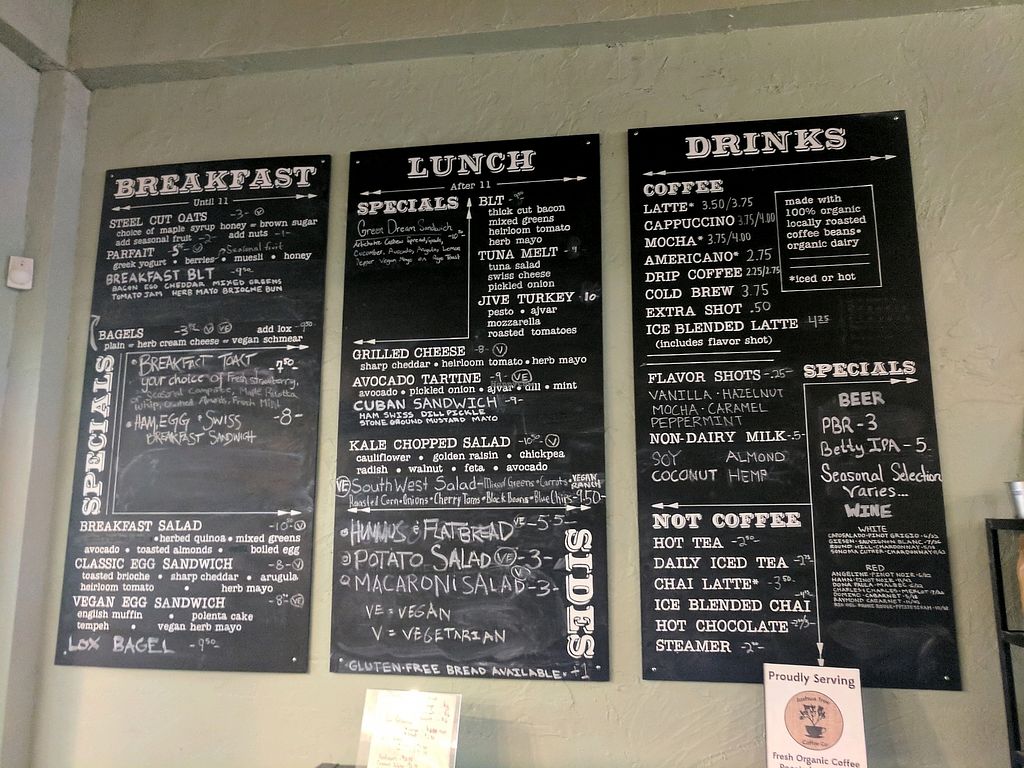 BREAKFAST
Until 11
STEEL CUT OATS -3- V
choice of maple syrup honey or brown sugar
add seasonal fruit -2- add nuts -1-
PARFAIT V Seasonal fruit
greek yogurt • berries • muesli • honey
BREAKFAST BLT -9.50
BACON EGG CHEDDAR MIXED GREENS
TOMATO JAM HERB MAYO BRIOCHE BUN
BAGELS V VE add lox -9.50
plain or herb cream cheese or vegan schmear
SPECIALS
• BREAKFAST TOAST -7.50-
your choice of Fresh strawberry,
or Seasonal Maple Ricotta
Almonds, Fresh Mint
• HAM, EGG & SWISS -8-
BREAKFAST SANDWICH
BREAKFAST SALAD V
• herbed quinoa • mixed greens
avocado • toasted almonds • boiled egg
CLASSIC EGG SANDWICH -8- V
toasted brioche • sharp cheddar • arugula
heirloom tomato • herb mayo
VEGAN EGG SANDWICH VE
english muffin • polenta cake
tempeh • vegan herb mayo
LOX BAGEL -9.50
LUNCH
After 11
SPECIALS
Green Dream Sandwich
Artichoke Cashew Spread,
Cucumber, Avocado, Arugula, Lemon
Pepper Vegan Mayo on Rye Toast
BLT
thick cut bacon
mixed greens
heirloom tomato
herb mayo
TUNA MELT
tuna salad
swiss cheese
pickled onion
JIVE TURKEY 10
pesto • ajvar
mozzarella
roasted tomatoes
GRILLED CHEESE -8- V
sharp cheddar • heirloom tomato • herb mayo
AVOCADO TARTINE -9- VE
avocado • pickled onion • ajvar • dill • mint
CUBAN SANDWICH -9-
HAM SWISS DILL PICKLE
STONE GROUND MUSTARD MAYO
KALE CHOPPED SALAD V
cauliflower • golden raisin • chickpea
radish • walnut • feta • avocado
VE South West Salad - Mixed Greens • Carrots • VEGAN RANCH
Roasted Corn • Onions • Cherry Toms • Black Beans • Blue Chips - 9.50-
SIDES
HUMMUS & FLATBREAD VE
POTATO SALAD VE -3-
MACARONI SALAD -3-
VE = VEGAN
V = VEGETARIAN
• GLUTEN-FREE BREAD AVAILABLE • +1
DRINKS
COFFEE
LATTE* 3.50/3.75
CAPPUCCINO 3.75/4.00
MOCHA* 3.75/4.00
AMERICANO* 2.75
DRIP COFFEE 2.25/2.75
COLD BREW 3.75
EXTRA SHOT .50
ICE BLENDED LATTE 4.25
(includes flavor shot)
made with
100% organic
locally roasted
coffee beans*
organic dairy
*iced or hot
FLAVOR SHOTS -.25-
VANILLA • HAZELNUT
MOCHA • CARAMEL
PEPPERMINT
NON-DAIRY MILK -.5-
SOY ALMOND
COCONUT HEMP
NOT COFFEE
HOT TEA
DAILY ICED TEA
CHAI LATTE* -3.50-
ICE BLENDED CHAI
HOT CHOCOLATE
STEAMER
SPECIALS
BEER
PBR - 3
Betty IPA - 5
Seasonal Selection
Varies...
WINE
WHITE
CAPOSALDO • PINOT GRIGIO
GIESEN • SAUVIGNON BLANC
ROUND HILL • CHARDONNAY
SONOMA CUTRER • CHARDONNAY
RED
ANGELINE • PINOT NOIR
HAHN • PINOT NOIR
DONA PAULA • MALBEC
CHARLES & CHARLES • MERLOT
CABARNET
RAYMOND CABARNET
Proudly Serving
Joshua Tree
Coffee Co.
Fresh Organic Coffee